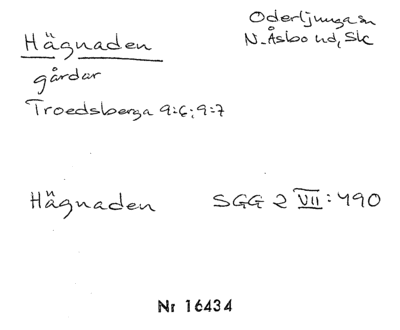 Hägnaden
Oderljunga sn
N. Åsbo hd, Sk
gårdar
Troedsberga 9:6; 9:7
Hägnaden SGG 2 VII: 490
Nr 16434